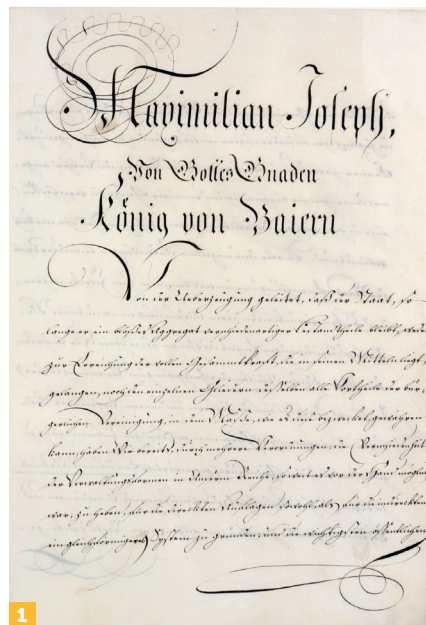 Maximilian Joseph,
Von Gottes Gnaden
König von Baiern
Von der Ueberzeugung geleitet, daß der Staat, so
lange er ein bloßes Aggregat verschiedenartiger Bestandtheile bleibt, weder
zur Erreichung der vollen Gesammtkraft, die in seinen Mitteln liegt,
gelangen, noch den einzelnen Gliedern desselben alle Vortheile der bür-
gerlichen Vereinigung, in dem Maße, wie diese bezwecket, gewähren
kann, haben Wir bereits durch mehrere Verordnungen die Verschiedenheit
der Verwaltungsformen in Unserm Reiche, so weit es vor der Hand möglich
war, zu heben, für die direkten Auflagen sowohl, als für die indirekten
ein gleichförmigeres System zu gründen, und die wichtigsten öffentlichen
1